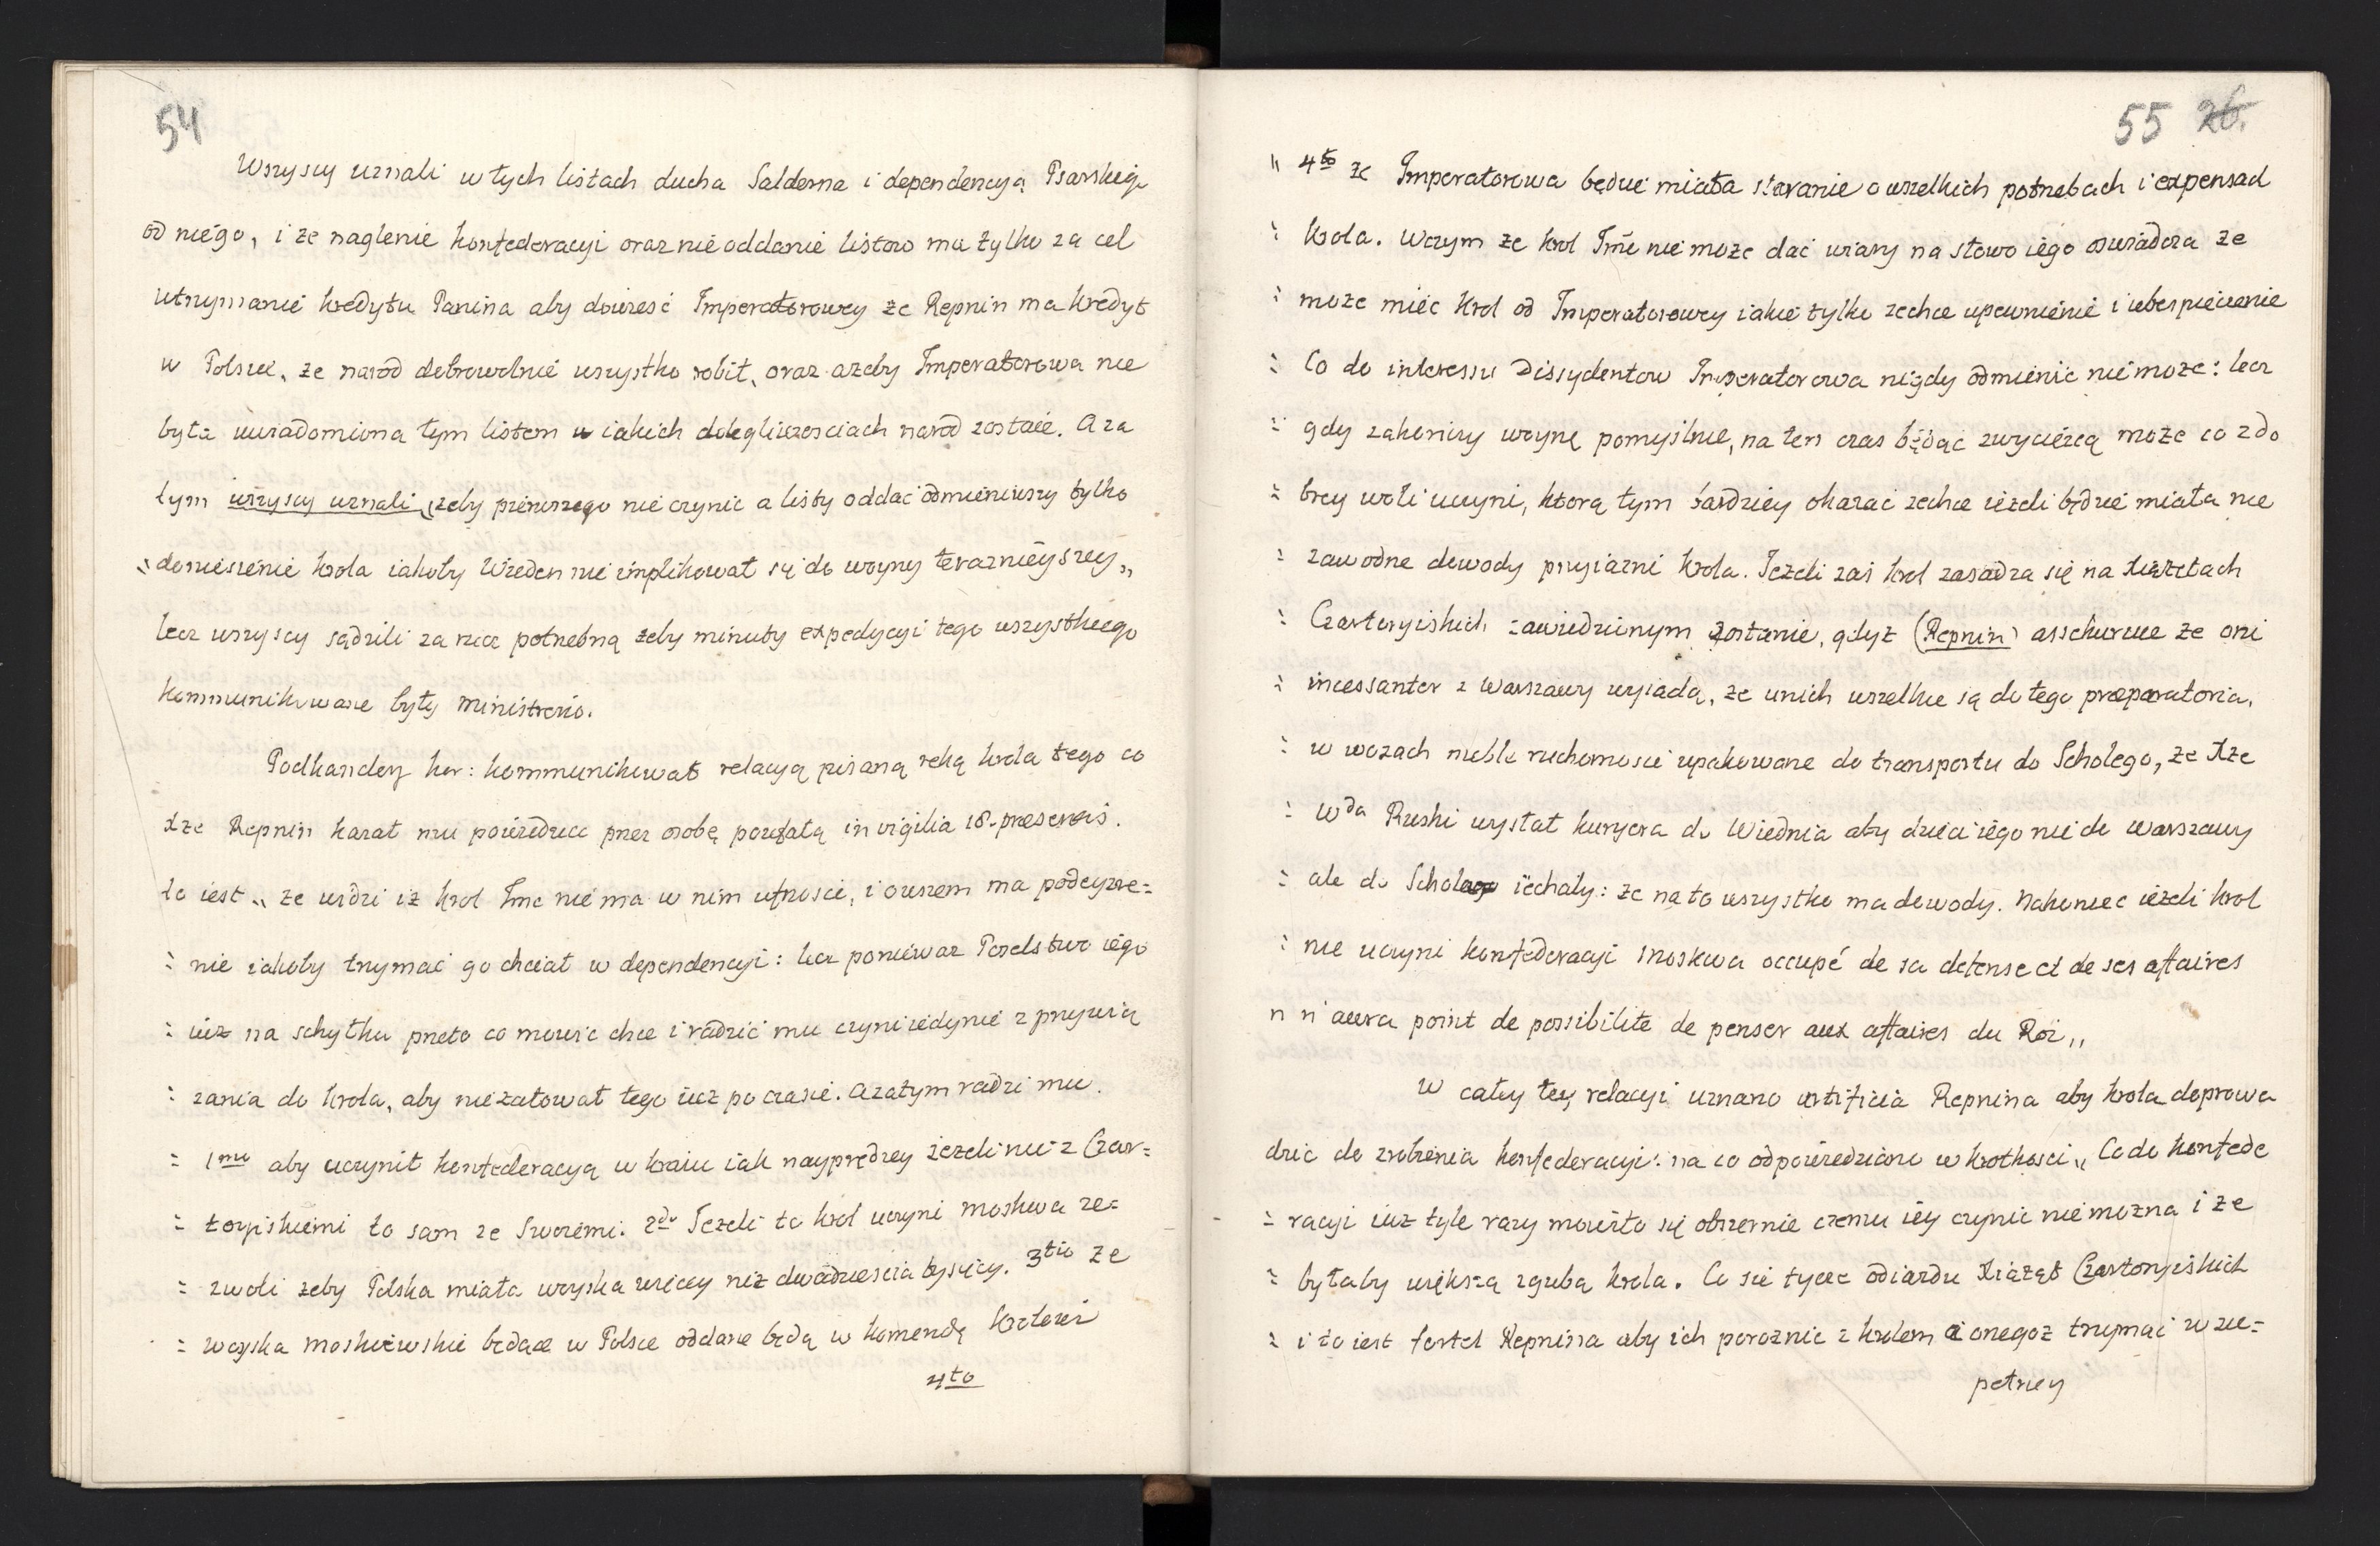 54
Wszyscy uznali w tych listach ducha Salderna i dependencyą Psarskiego
od niego, i ze naglenie konfederacyi oraz nie oddanie listow ma tylko za cel
utrzymanie kredytu Panina aby donieść Imperatorowey ze Repnin ma kredyt
w Polszcze, ze narod dobrowolnie wszystko robit, oraz azeby Imperatorowa nie
była uwiadomiona tym listem w iakich dolegliwosciach narod zostaie. A za
tym wszyscy uznali „zeby pierwszego nie czynic a listy oddac odmieniwszy tylko
„doniesienie krola iakoby Wieden nie implikowat się do woyny terazniéyszey„
lecz wszyscy sądzili za rzecz potrzebną zeby minuty expedycyi tego wszystkiego
kommunikowane były ministerio.
Podkanclerz kor: kommunikowat relacyą pisaną ręką krola tego co
Xze Repnin kazat mu powiedziec przez osobę poufałą in vigilia 18. praesentis.
to iest „ ze widzi iz krol Jmc nie ma w nim ufnosci, i owszem ma podeyrze=
= nie iakoby trzymac go chciat w dependencyi: lecz poniewaz Poselstwo iego
= iuz na schytku przeto co mowic chce i radzic mu czyni iedynie z przywią
= zania do krola, aby nie zatowat tego iuz po czasie. A zatym radzi mu.
= 1mo aby uczynit konfederacyą w kraiu iak nayprędzey iezeli nie z Czar=
= toryiskiemi to sam ze Swoiemi. 2do Jezeli to krol uczyni moskwa ze=
= zwoli zeby Polska miata woyska więcey niz dwadziescia tysięcy. 3tio ze
= woyska moskiewskie będące w Polsce oddane będą w komendę krolowi
4to
55 26.
„ 4to ze Imperatorowa będzie miata staranie o wszelkich potrzebach i expensach
= krola. W czym ze krol Jmc nie moze dac wiary na stowo iego oswiadcza ze
= moze miec krol od Imperatorowey iakie tylko zechce upewnienie i ubespieczenie
= Co do interessu Dissydentow Imperatorowa nigdy odmienic nie moze: lecz
= gdy zakonczy woynę pomyslnie, na ten czas będąc zwyciézcą może co z do
= brey woli uczyni, ktorą tym bardziey okazac zechce iezeli będzie miata nie
= zawodne dowody przyiazni krola. Jezeli zas krol zasadza się na Xiązętach
= Czartoryiskich zawiedzionym zostanie, gdyz (Repnin) assekuruie ze oni
= incessanter z Warszawy wyiadą, ze u nich wszelkie są do tego praeparatoria,
= w wozach meble ruchomosci upakowane do transportu do Scholego, ze Xze
= Wda Ruski wystat kuryera do Wiednia aby dzieci iego nie do Warszawy
= ale do Scholego iechaty: ze na to wszystko ma dowody. Nakoniec iezeli krol
= nie uczyni konfederacyi Moskwa occupé de sa defense et de ses affaires
n n'aura point de possibilite de penser aux affaires du Roi„
W catey tey relacyi uznano artificia Repnina aby krola doprowa
dzic do zrobienia konfederacyi: na co odpowiedziano w krotkosci„ Co do konfede
= racyi iuz tyle razy mowiło się obszernie czemu iéy czynic nie mozna i ze
= bytaby większą zgubą krola. Co się tycze odiazdu Xiążąt Czartoryiskich
= i to iest fortel Repnina aby ich poroznic z krolem i onegoz trzymac w ze=
petney